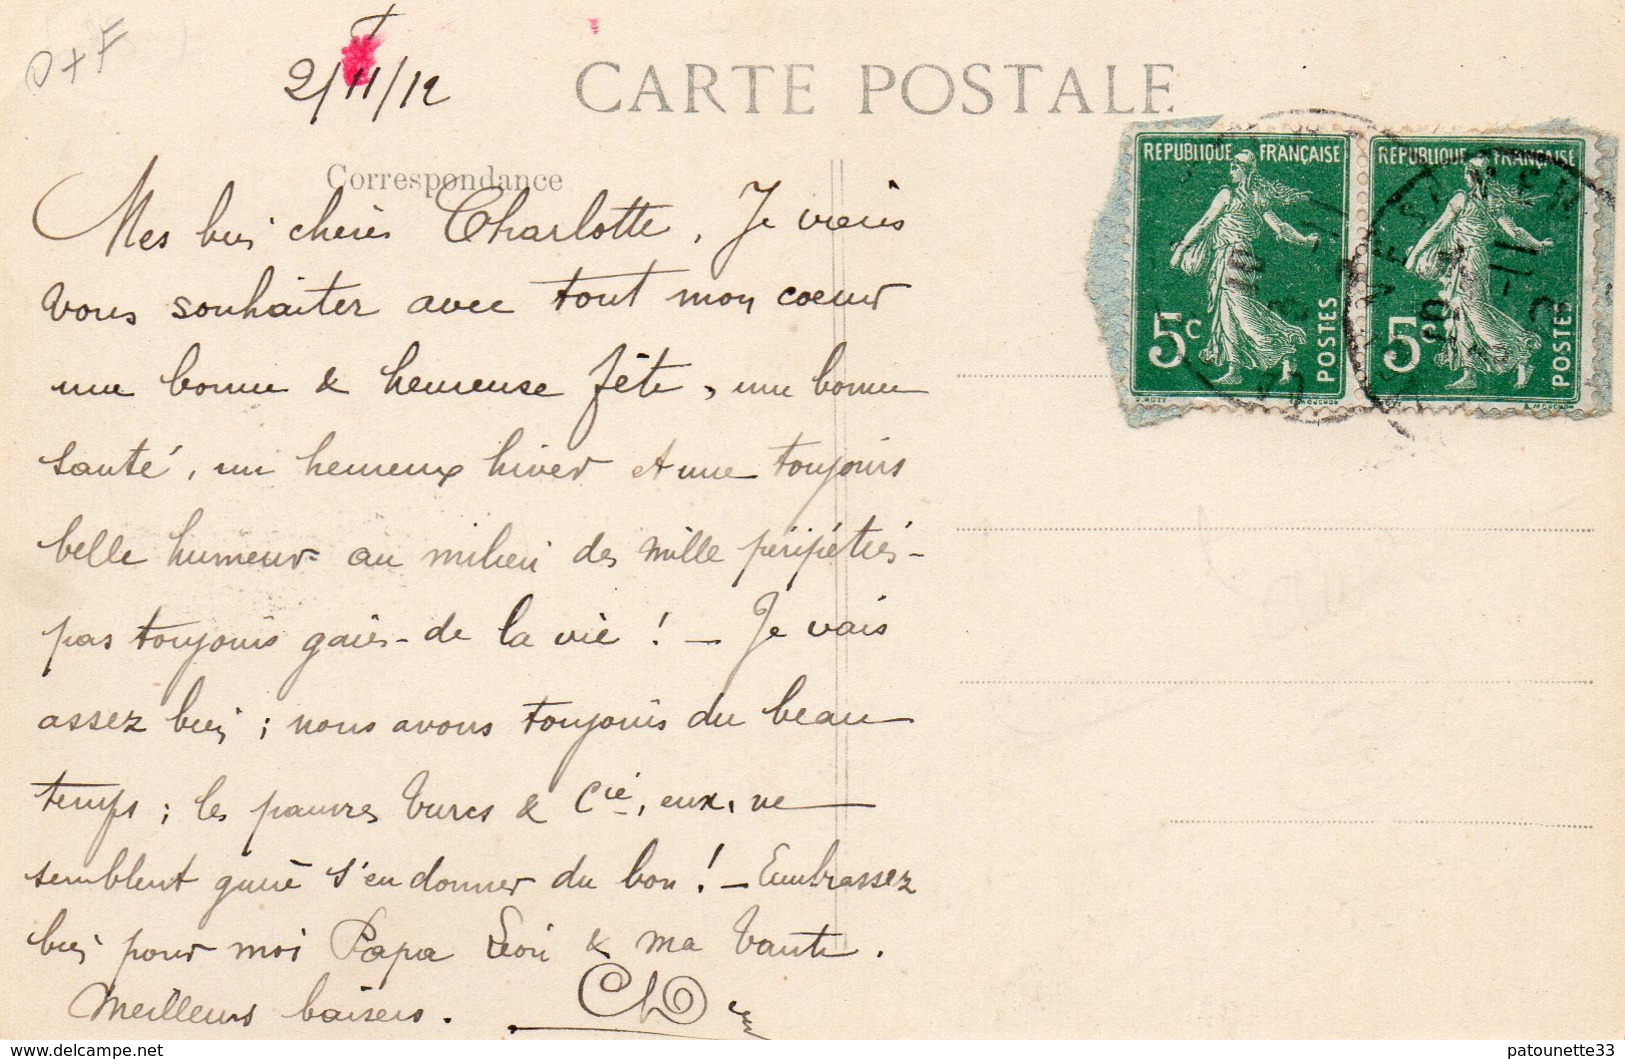 O+F
2/11/12
CARTE POSTALE
Correspondance
REPUBLIQUE FRANÇAISE
5c POSTES
REPUBLIQUE FRANÇAISE
5c POSTES
Mes bien chères Charlotte, Je viens
vous souhaiter avec tout mon coeur
une bonne & heureuse fête, une bonne
santé, un heureux hiver et une toujours
belle humeur au milieu des mille péripéties-
pas toujours gaies- de la vie ! — Je vais
assez bien ; nous avons toujours du beau
temps ; les pauvres Turcs & Cie, eux, ne
semblent guère s'en donner du bon ! — Embrassez
bien pour moi Papa Léon & ma Tante.
Meilleurs baisers.
www.delcampe.net
patounette33